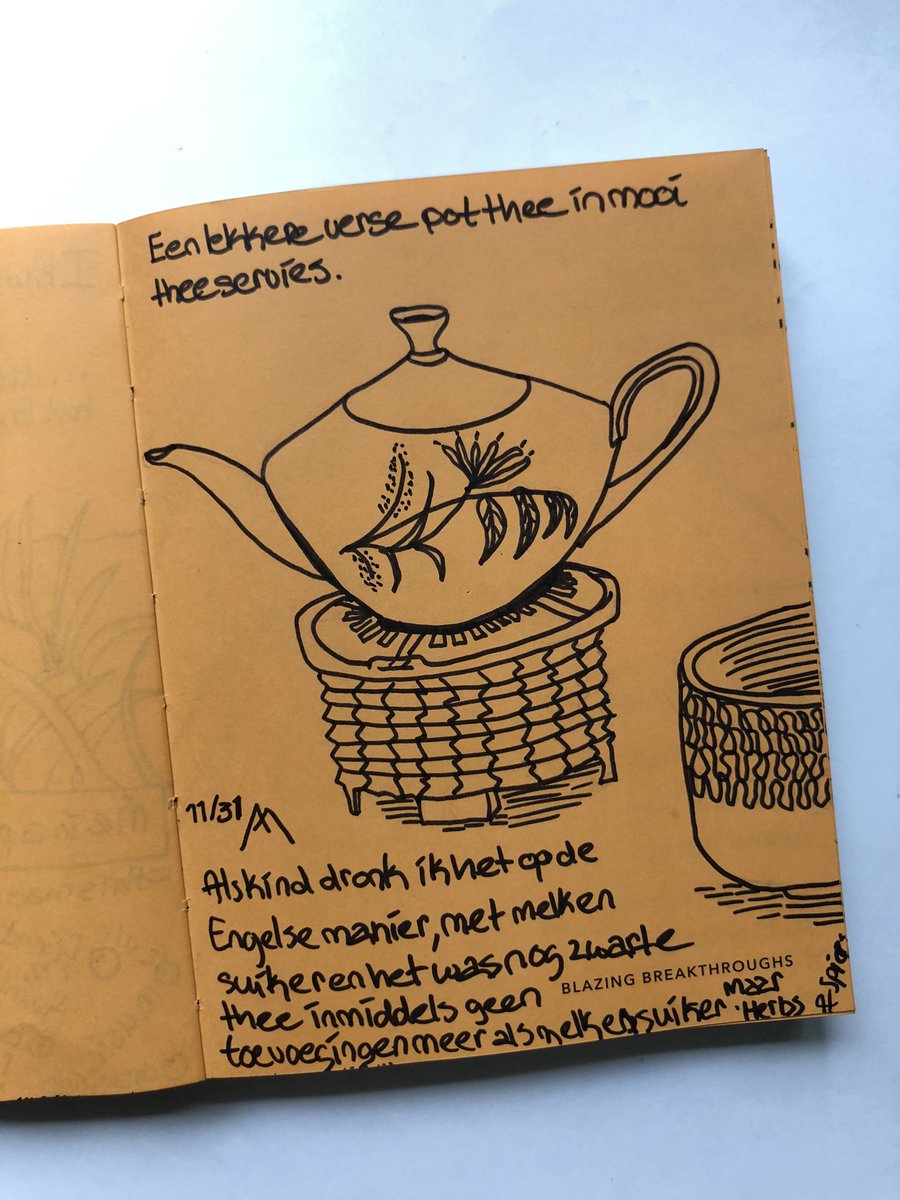 Een lekkere verse pot thee in mooi
theeservies.
11/31
Als kind dronk ik het op de
Engelse manier, met melk en
suiker en het was nog zwarte
BLAZING BREAKTHROUGHS
thee inmiddels geen
toevoegingen meer als melk en suiker. maar
Herbs